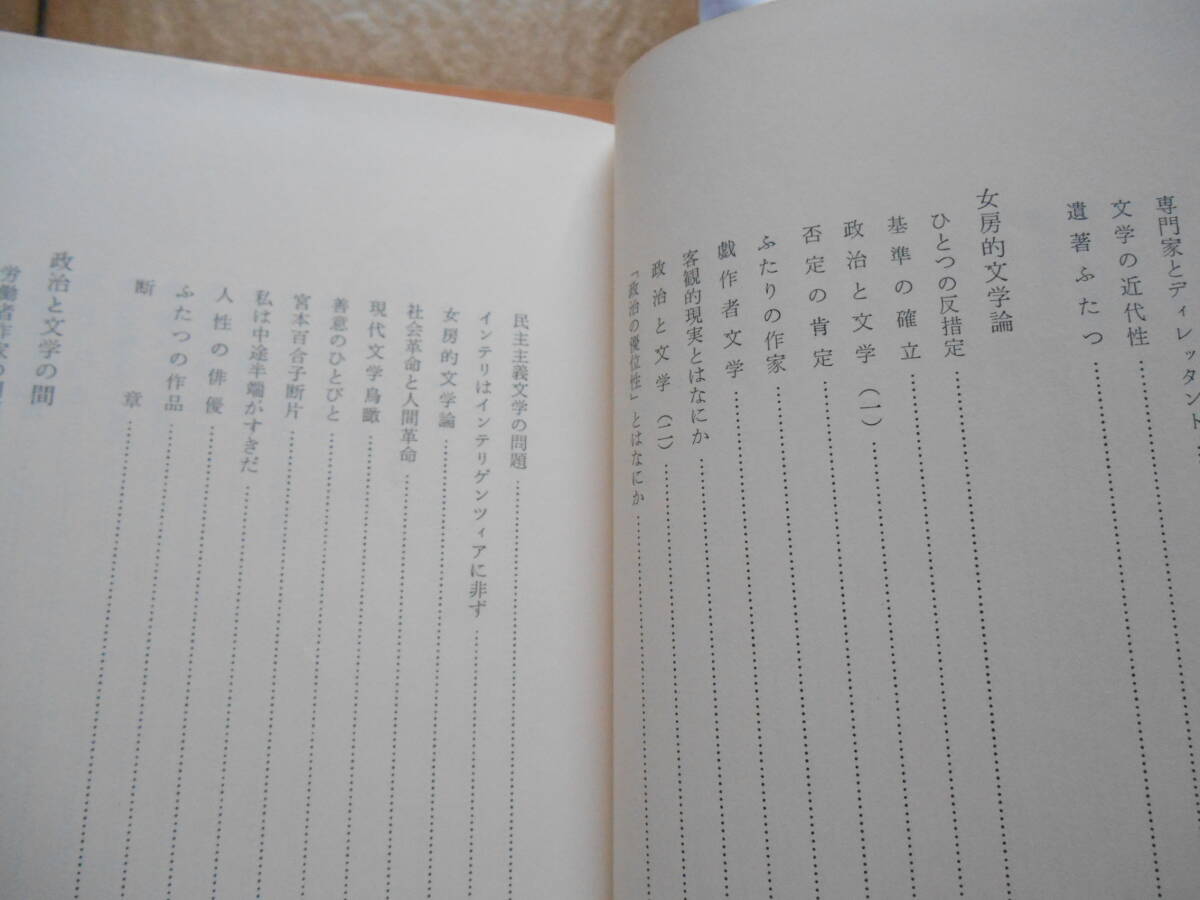 専門家とディレッタント
文学の近代性
遺著ふたつ
女房的文学論
ひとつの反措定
基準の確立
政治と文学（一）
否定の肯定
ふたりの作家
戯作者文学
客観的現実とはなにか
政治と文学（二）
「政治の優位性」とはなにか
民主主義文学の問題
インテリはインテリゲンツィアに非ず
女房的文学論
社会革命と人間革命
現代文学鳥瞰
善意のひとびと
宮本百合子断片
私は中途半端がすきだ
人性の俳優
ふたつの作品
断章
政治と文学の間
労働者作家の問